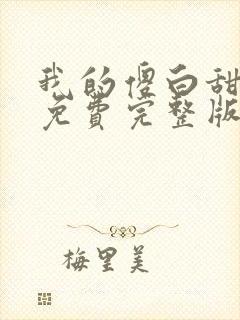 我的傻白甜
免费完整版
梅里美